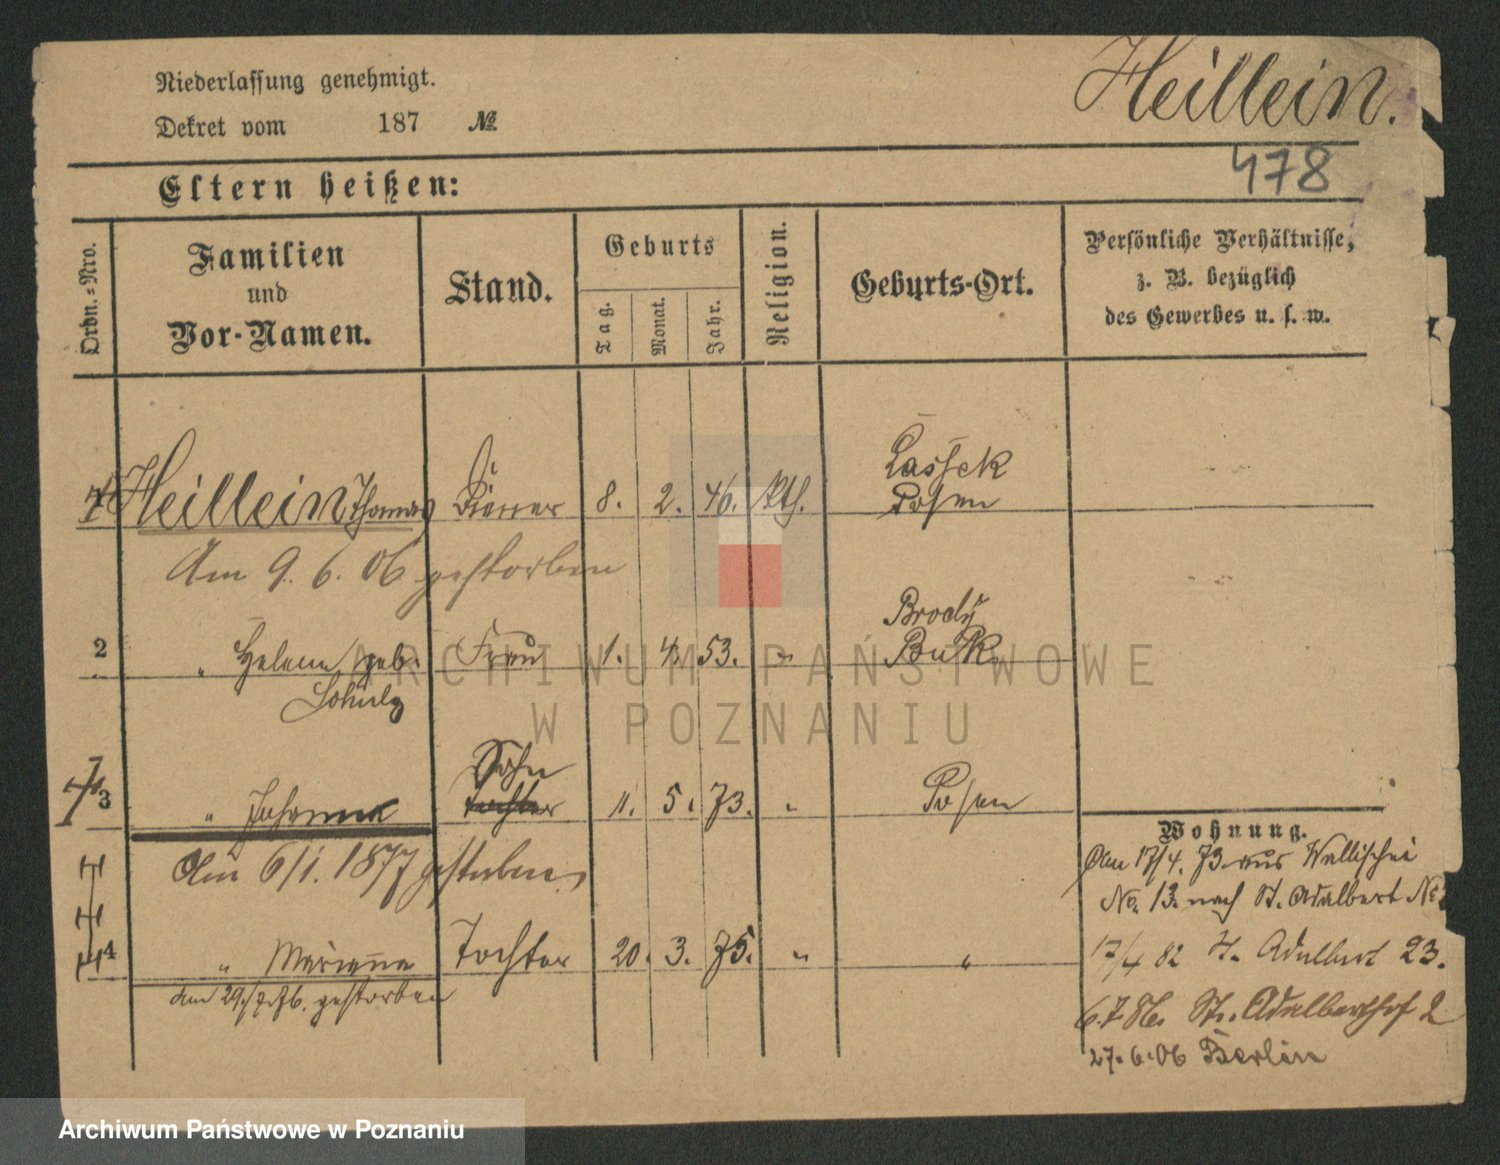 Niederlassung genehmigt.
Heillein.
Dekret vom 187 №
478
Eltern heißen:
Ordn.-Nro.
Familien und Vor-Namen.
Stand.
Geburts
Tag.
Monat.
Jahr.
Religion.
Geburts-Ort.
Persönliche Verhältnisse,
z. B. bezüglich
des Gewerbes u. s. w.
Lassek
1 Heillein Thomas Diener 8. 2. 46. kth. Posen
Am 9. 6. 06 gestorben
Brody
2 " Helena geb. Frau 1. 4. 53. " Buk
Schulz
Sohn
3 " Johann Tochter 11. 5. 73. " Posen
Wohnung.
Am 6/1. 1877 gestorben
Am 17/4. 73 aus Wallischei
No. 13. nach St. Adalbert No
4 " Marianna Tochter 20. 3. 75. " "
am 29./7.76. gestorben
17/4 82 St. Adalbert 23.
6.7.86. St. Adalberthof 2
27.6.06 Berlin
ARCHIWUM PAŃSTWOWE
W POZNANIU
Archiwum Państwowe w Poznaniu